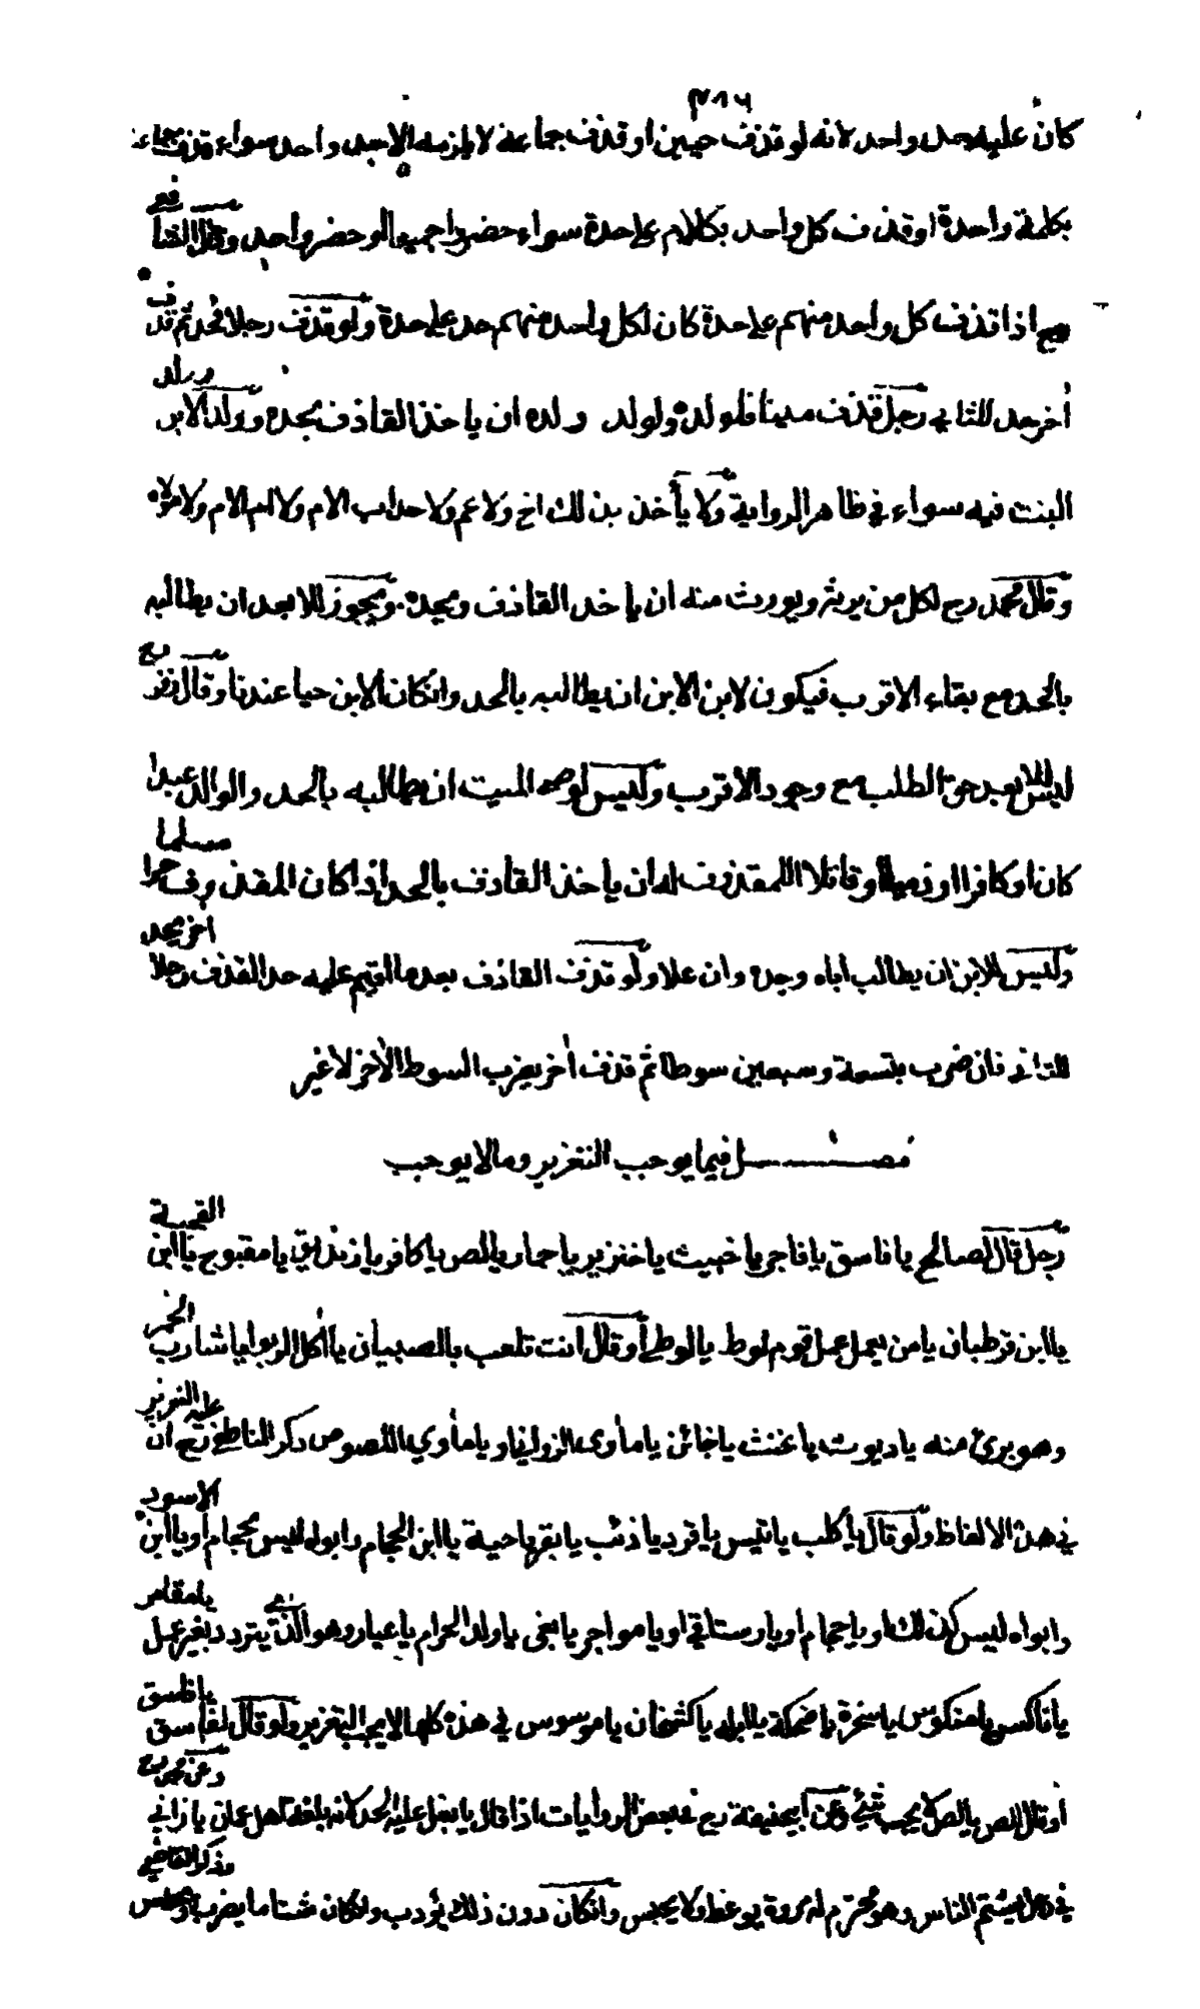 ٣١٦
كان عليه حد واحد لانه لو قذف حيين او قذف جماعة لا يلزمه الا حد واحد سواء قذف جماعة
بكلمة واحدة او قذف كل واحد بكلام على حدة سواء حضروا جميعا او حضر واحد وقال الشافعي
رح اذا قذف كل واحد منهم على حدة كان لكل واحد منهم حد على حدة ولو قذف رجلا فحد ثم قذف
أخر حد للثاني رجل قذف ميتا فلولده ولولد ولده ان ياخذ القاذف بحده وولد الابن وولد
البنت فيه سواء في ظاهر الرواية ولا يأخذ بذلك اخ ولا عم ولا جد اب الام ولا ام الام ولا مولاه
وقال محمد رح لكل من يرثه ويورث منه ان ياخذ القاذف ويحده ويجوز للابعد ان يطالبه
بالحد مع بقاء الاقرب فيكون لابن الابن ان يطالبه بالحد وانكان الابن حيا عندنا وقال زفر رح
ليس للابعد حق الطلب مع وجود الاقرب وليس لوصي الميت ان يطالبه بالحد والوالد عبدا
كان او كافرا او ذميا او قاتلا للمقذوف له ان يأخذ القاذف بالحد اذا كان المقذوف حرا مسلما
وليس للابن ان يطالب اباه وجده وان علا ولو قذف القاذف بعد ما اقيم عليه حد القذف رجلا أخر يحد
للثاني فان ضرب بتسعة وسبعين سوطا ثم قذف أخر يضرب السوط الأخر لا غير
فصل فيما يوجب التعزير وما لا يوجب
رجل قال لصالح يا فاسق يا فاجر يا خبيث يا خنزير يا حمار يا لص يا كافر يا زنديق يا مقبوح يا ابن القحبة
يا ابن قرطبان يا من يعمل عمل قوم لوط يا لوطي أو قال انت تلعب بالصبيان يا أكل الربوا يا شارب الخمر
وهو بريء منه يا ديوث يا مخنث يا خائن يا مأوى الزواني او يا مأوي اللصوص ذكر الناطفي رح ان عليه التعزير
في هذه الالفاظ ولو قال يا كلب يا تيس يا قرد يا ذئب يا بقر يا حية يا ابن الحجام وابوه ليس بحجام أو يا ابن الاسود
وابواه ليس كذلك او يا حجام او يا رستاقي او يا مواجر يا بغي يا ولد الحرام يا عيار وهو الذي يتردد بغير عمل يا مقامر
يا ناكس يا منكوس يا سخرة يا ضحكة يا ابله يا كشخان يا موسوس في هذه كلها لا يجب التعزير ولو قال لفاسق يا فاسق
او قال للص يا لص لا يجب شيء وعن ابيحنيفة رح في بعض الروايات اذا قال يا بغل عليه الحد لانه بلغة اهل عمان يا زاني وعن محمد رح
في رجل يشتم الناس وهو محترم له مروة يوعظ ولا يحبس وانكان دون ذلك يؤدب وانكان شتاما يضرب ويحبس وذكر القاضي